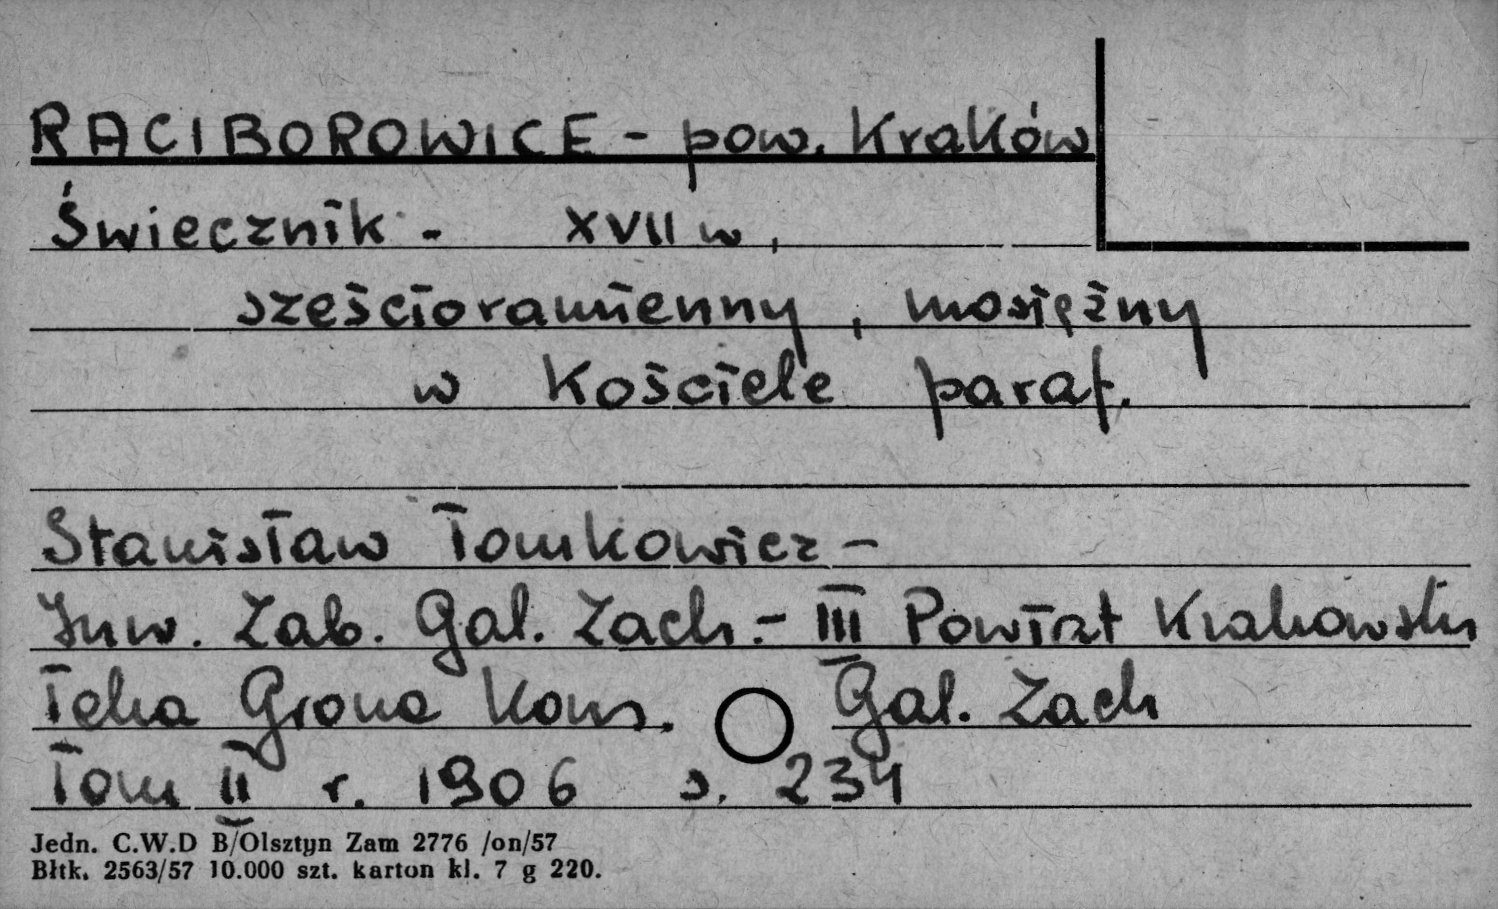 RACIBOROWICE - pow. Kraków
Świecznik - XVII w,
sześcioramienny, mosiężny
w Kościele paraf.
Stanisław Tomkowicz -
Inw. Zab. Gal. Zach. - III Powiat Krakowski
Teka Grona Kons. Gal. Zach
Tom II r. 1906 s. 234
Jedn. C.W.D B/Olsztyn Zam 2776 /on/57
Błtk. 2563/57 10.000 szt. karton kl. 7 g 220.